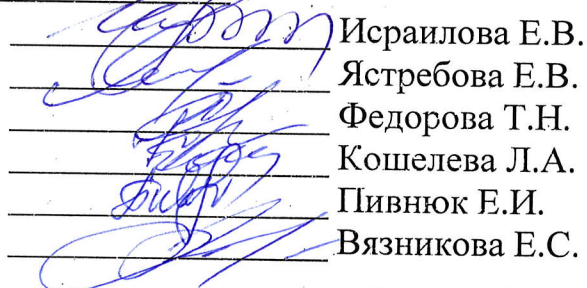 Исраилова Е.В.
Ястребова Е.В.
Федорова Т.Н.
Кошелева Л.А.
Пивнюк Е.И.
Вязникова Е.С.